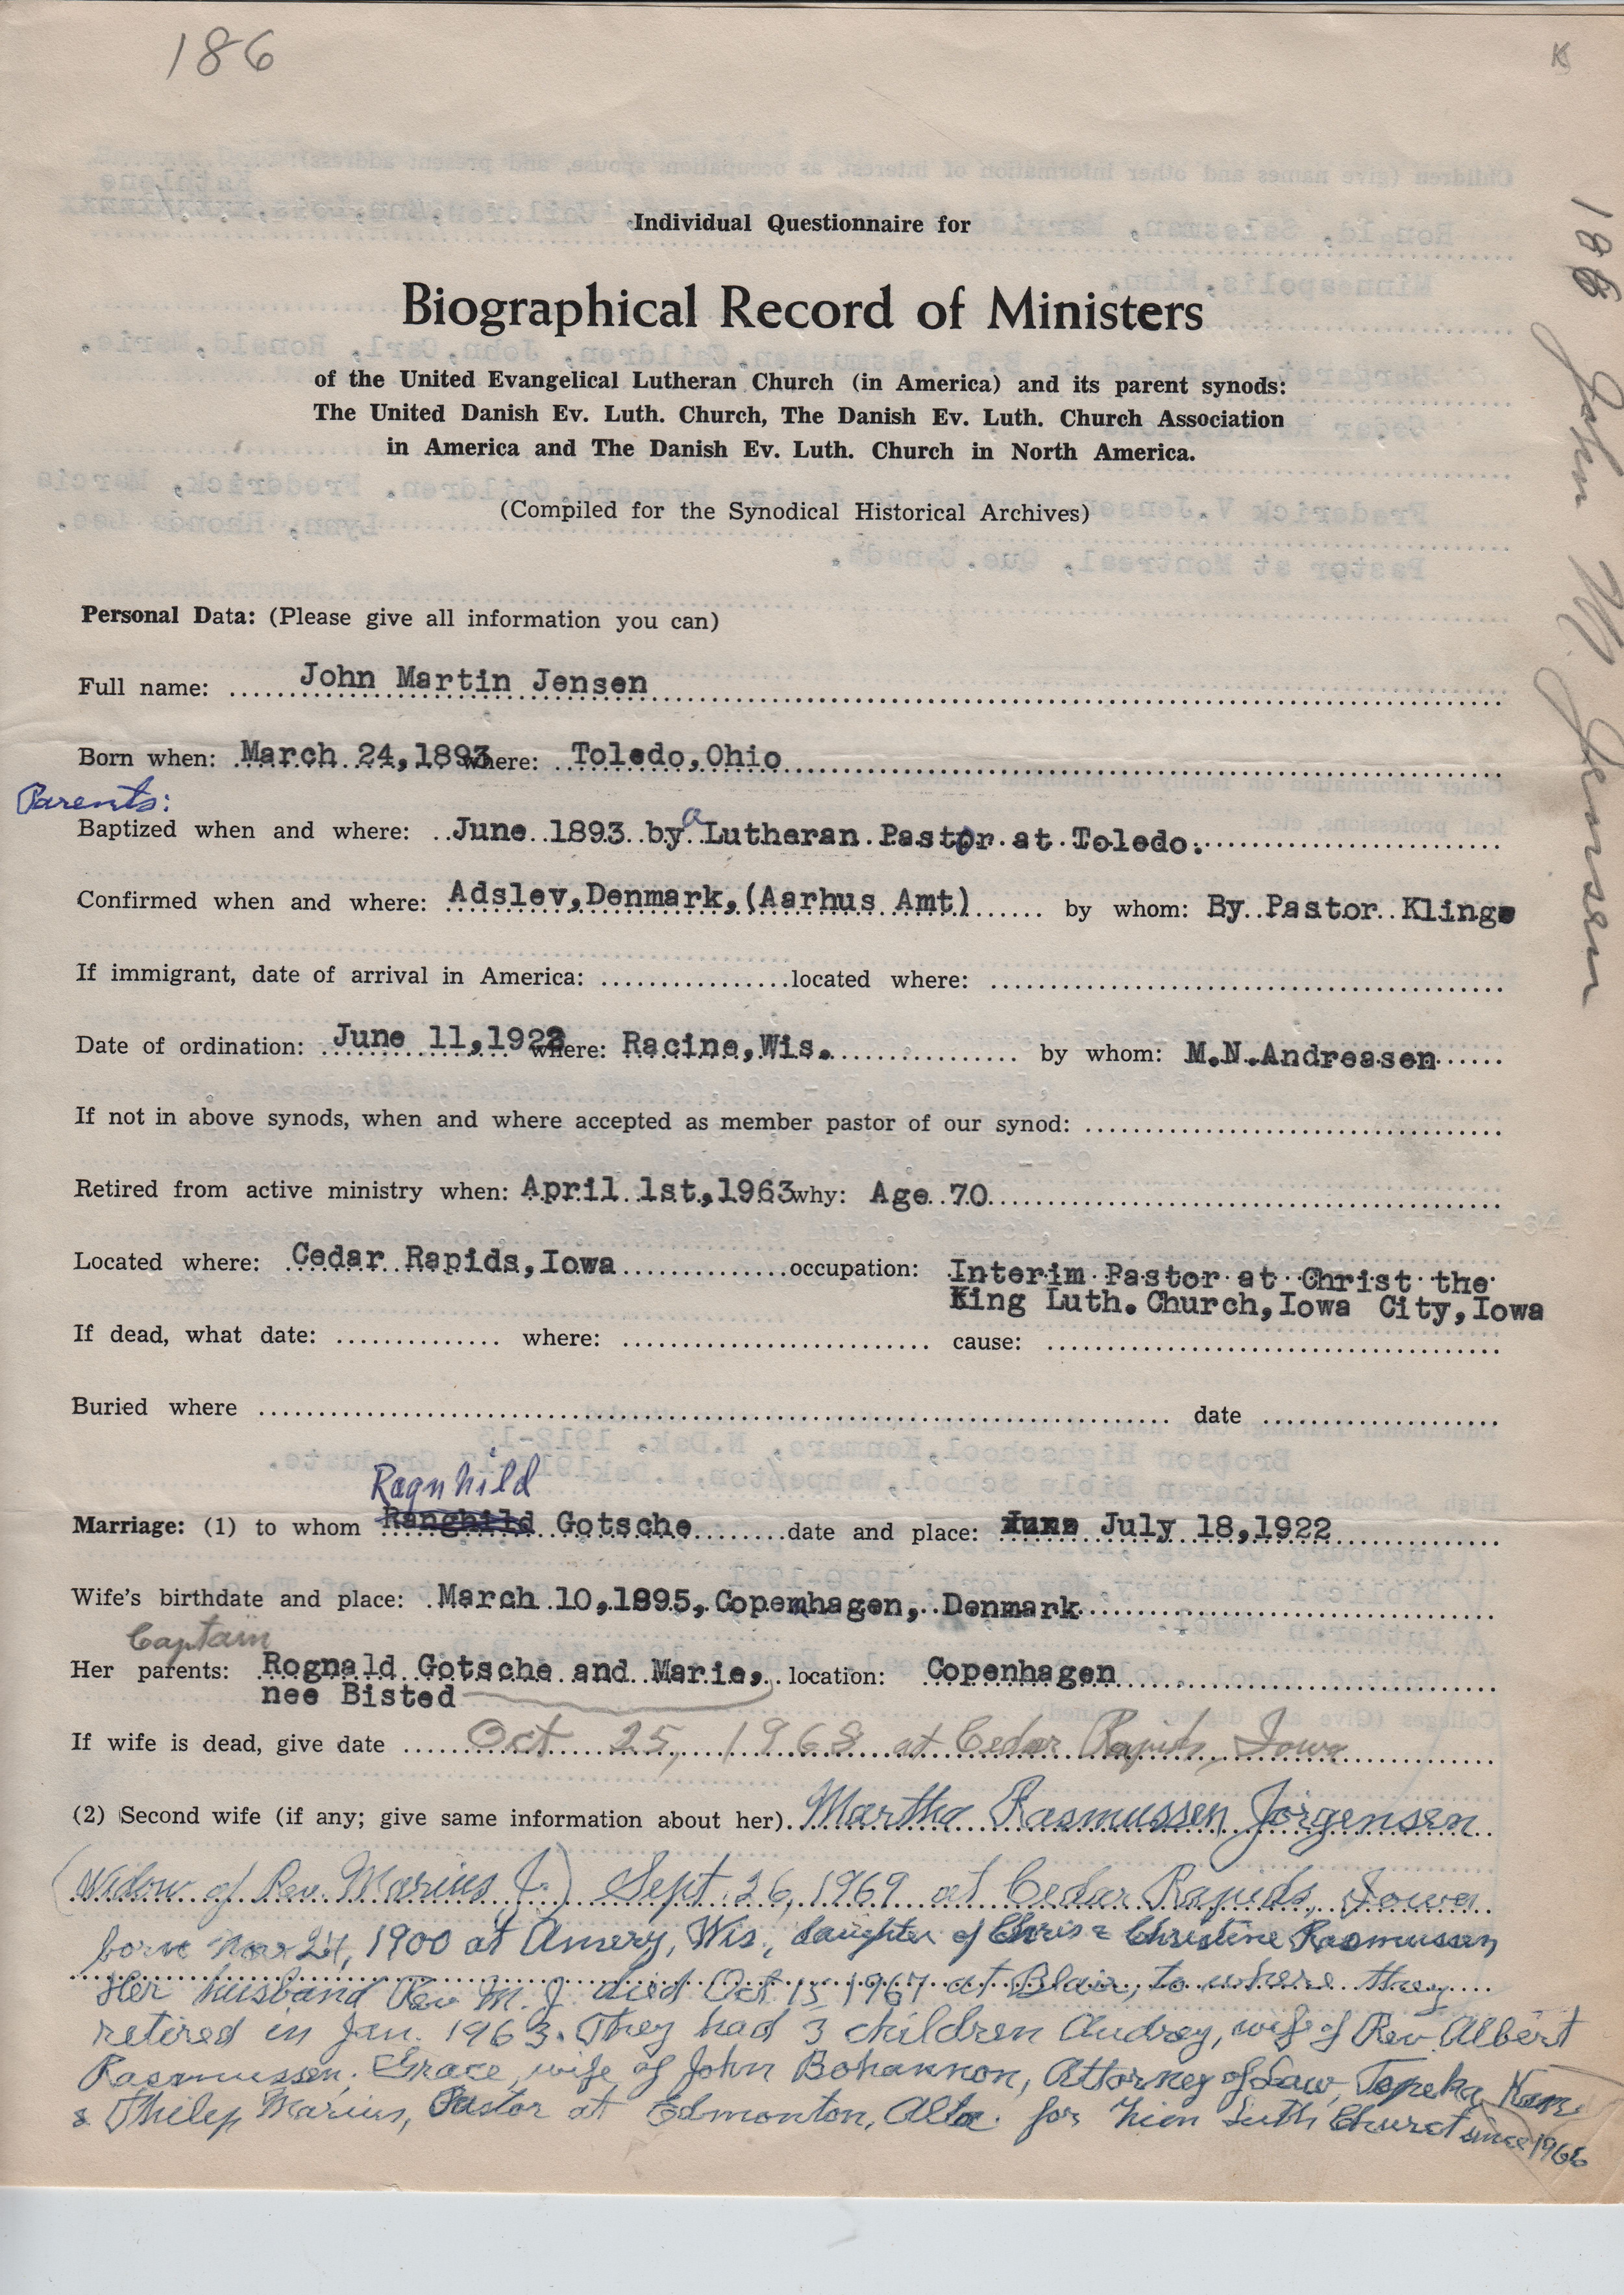 186
K
Individual Questionnaire for
Biographical Record of Ministers
of the United Evangelical Lutheran Church (in America) and its parent synods:
The United Danish Ev. Luth. Church, The Danish Ev. Luth. Church Association
in America and The Danish Ev. Luth. Church in North America.
(Compiled for the Synodical Historical Archives)
186 John M. Jensen
Personal Data: (Please give all information you can)
Full name: John Martin Jensen
Born when: March 24, 1893 where: Toledo, Ohio
Parents:
Baptized when and where: June 1893 by a Lutheran Pastor at Toledo.
Confirmed when and where: Adslev, Denmark, (Aarhus Amt) by whom: By Pastor Klinge
If immigrant, date of arrival in America: located where:
Date of ordination: June 11, 1922 where: Racine, Wis. by whom: M.N. Andreasen
If not in above synods, when and where accepted as member pastor of our synod:
Retired from active ministry when: April 1st, 1963 why: Age 70
Located where: Cedar Rapids, Iowa occupation: Interim Pastor at Christ the
King Luth. Church, Iowa City, Iowa
If dead, what date: where: cause:
Buried where date
Ragnhild
Marriage: (1) to whom Ranghild Gotsche date and place: June July 18, 1922
Wife's birthdate and place: March 10, 1895, Copenhagen, Denmark
Captain
Her parents: Rognald Gotsche and Marie, location: Copenhagen
nee Bisted
If wife is dead, give date Oct 25, 1968 at Cedar Rapids, Iowa
(2) Second wife (if any; give same information about her). Martha Rasmussen Jorgensen
(Widow of Rev. Marius J.) Sept. 26, 1969 at Cedar Rapids, Iowa
born Nov 24, 1900 at Amery, Wis., daughter of Chris & Christine Rasmussen
Her husband Rev M. J. died Oct 15 1967 at Blair, to where they
retired in Jan. 1963. They had 3 children Audrey, wife of Rev. Albert
Rasmussen; Grace, wife of John Bohannon, Attorney of Law, Topeka, Kans
& Philip Marius, Pastor at Edmonton, Alta. for Luth Church since 1966